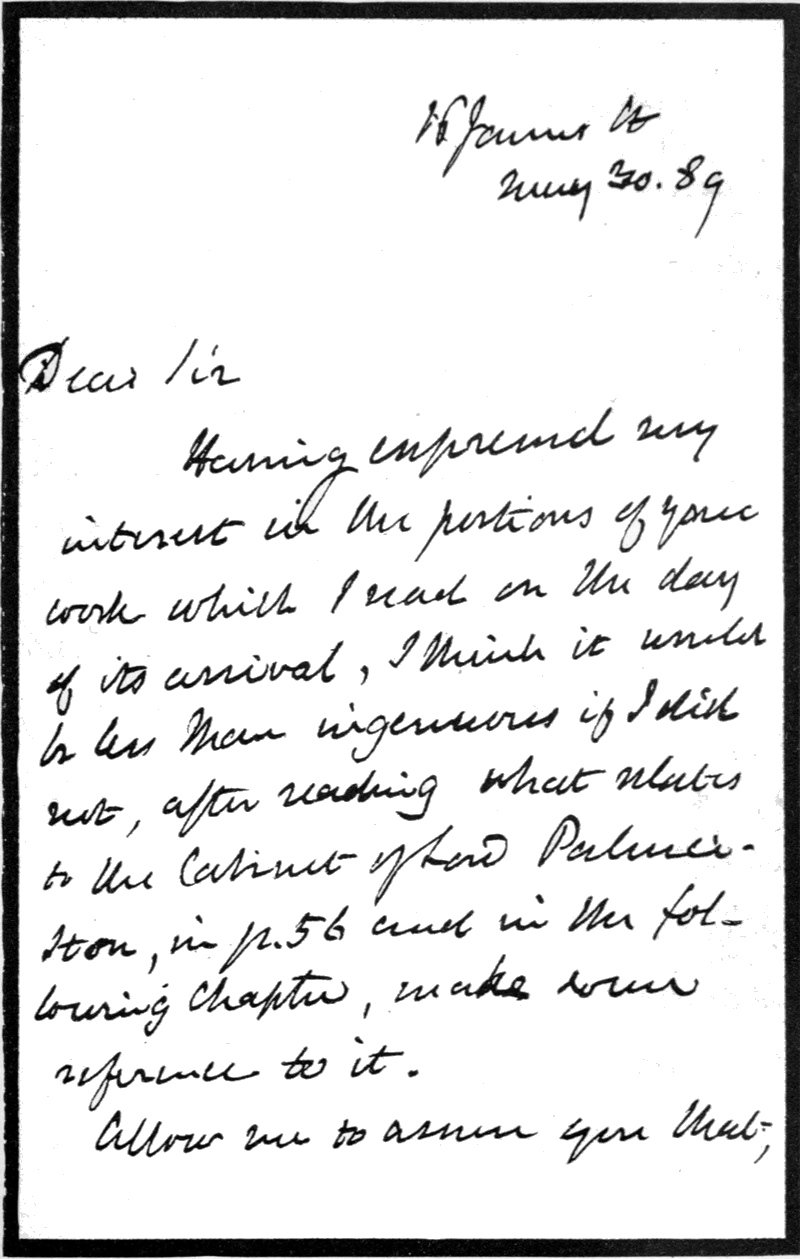 16 James St
May 30. 89
Dear Sir
Having expressed my
interest in the portions of your
work which I read on the day
of its arrival, I think it would
be less than ingenuous if I did
not, after reading what relates
to the Cabinet of Lord Palmer-
ston, in p. 56 and in the fol-
lowing Chapter, make some
reference to it.
Allow me to assure you that,